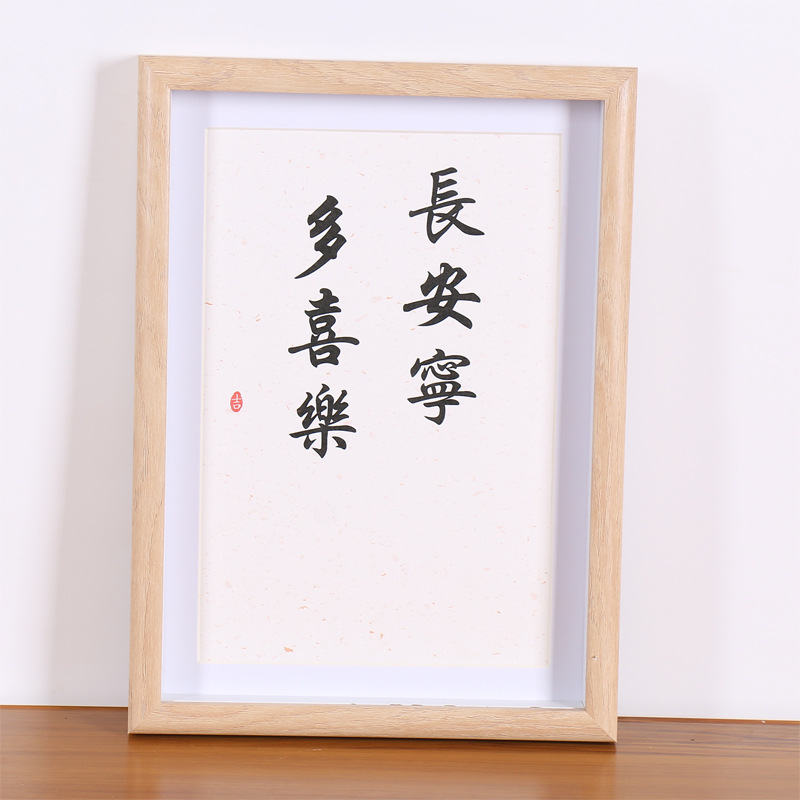 長安寧
多喜樂
吉